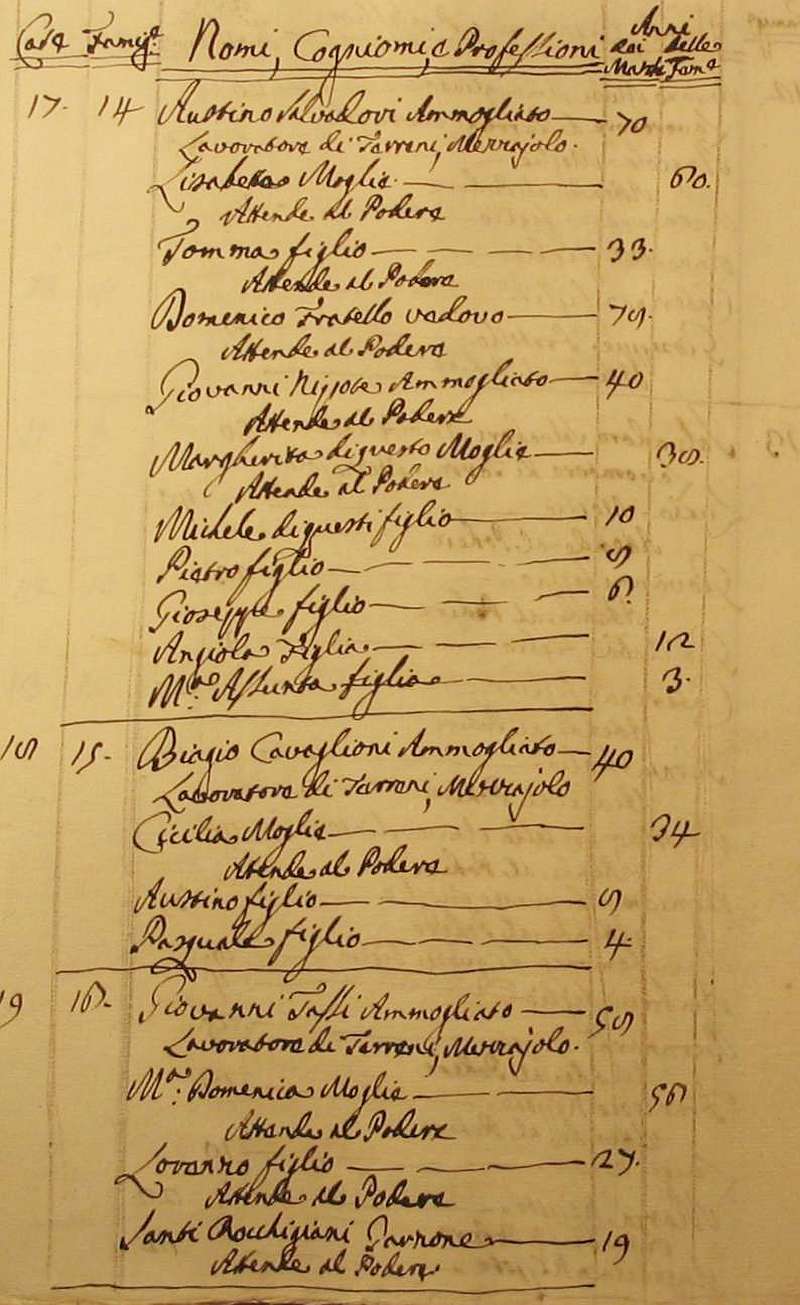 Case Famig.e Nomi, Cogniomi, e Professioni Anni dei Maschi delle Fam.e
17. 14 Austino Salvadori Ammogliato 70
Lavoratore di Terreni, Mezzajolo.
Lisabetta Moglie. 60.
Attende al Podere
Tomma figlio 33.
Attende al Podere
Domenico Fratello vedovo 75.
Attende al Podere
Giovanni Nipote Ammogliato 40
Attende al Podere
Margherita di questo Moglie 35.
Attende al Podere
Michele di questi figlio 10
Pietro figlio
Gioseppe figlio 6.
Angiola Figlia 12
M.a Assunta figlia 3.
15. Biagio Cavaglioni Ammogliato 40
Lavoratore di Terreni, Mezzajolo
Cicilia Moglie 34
Attende al Podere
Austino figlio
Pasquale figlio 4
19 16. Giovanni Tassi Ammogliato
Lavoratore di Terreni, Mezzajolo.
M.a Domenica Moglie 56
Attende al Podere
Lorenzo figlio 27.
Attende al Podere
Santi Rocchigiani Garzone 19
Attende al Podere